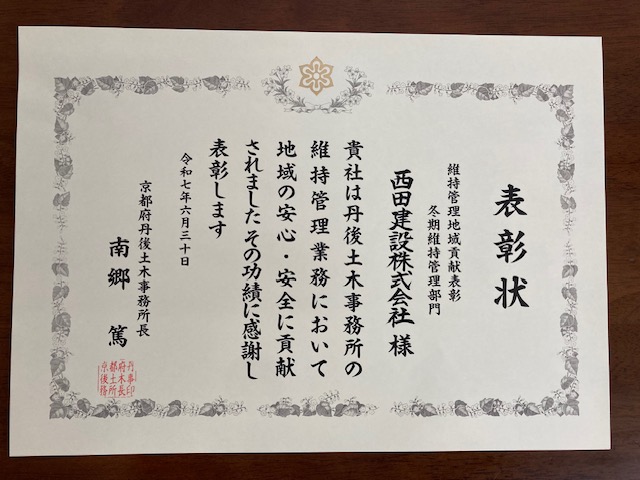 表彰状
維持管理地域貢献表彰
冬期維持管理部門
西田建設株式会社 様
貴社は丹後土木事務所の
維持管理業務において
地域の安心・安全に貢献
されましたその功績に感謝し
表彰します
令和七年六月三十日
京都府丹後土木事務所長
南郷 篤
丹事印
府木長
都土所
京後務